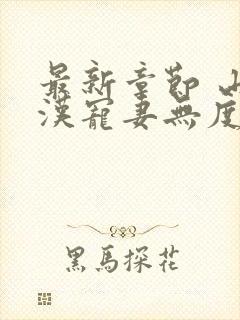 最新章節 山
漢寵妻無度
黑馬探花